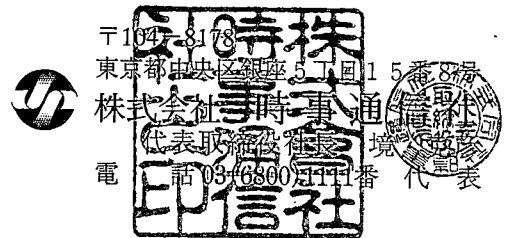 〒104-8178
東京都中央区銀座5丁目15番8号
株式会社 時事通信社
代表取締役社長 境
電話 03-6800-1111番 代表
株式会社
時事通信
社印